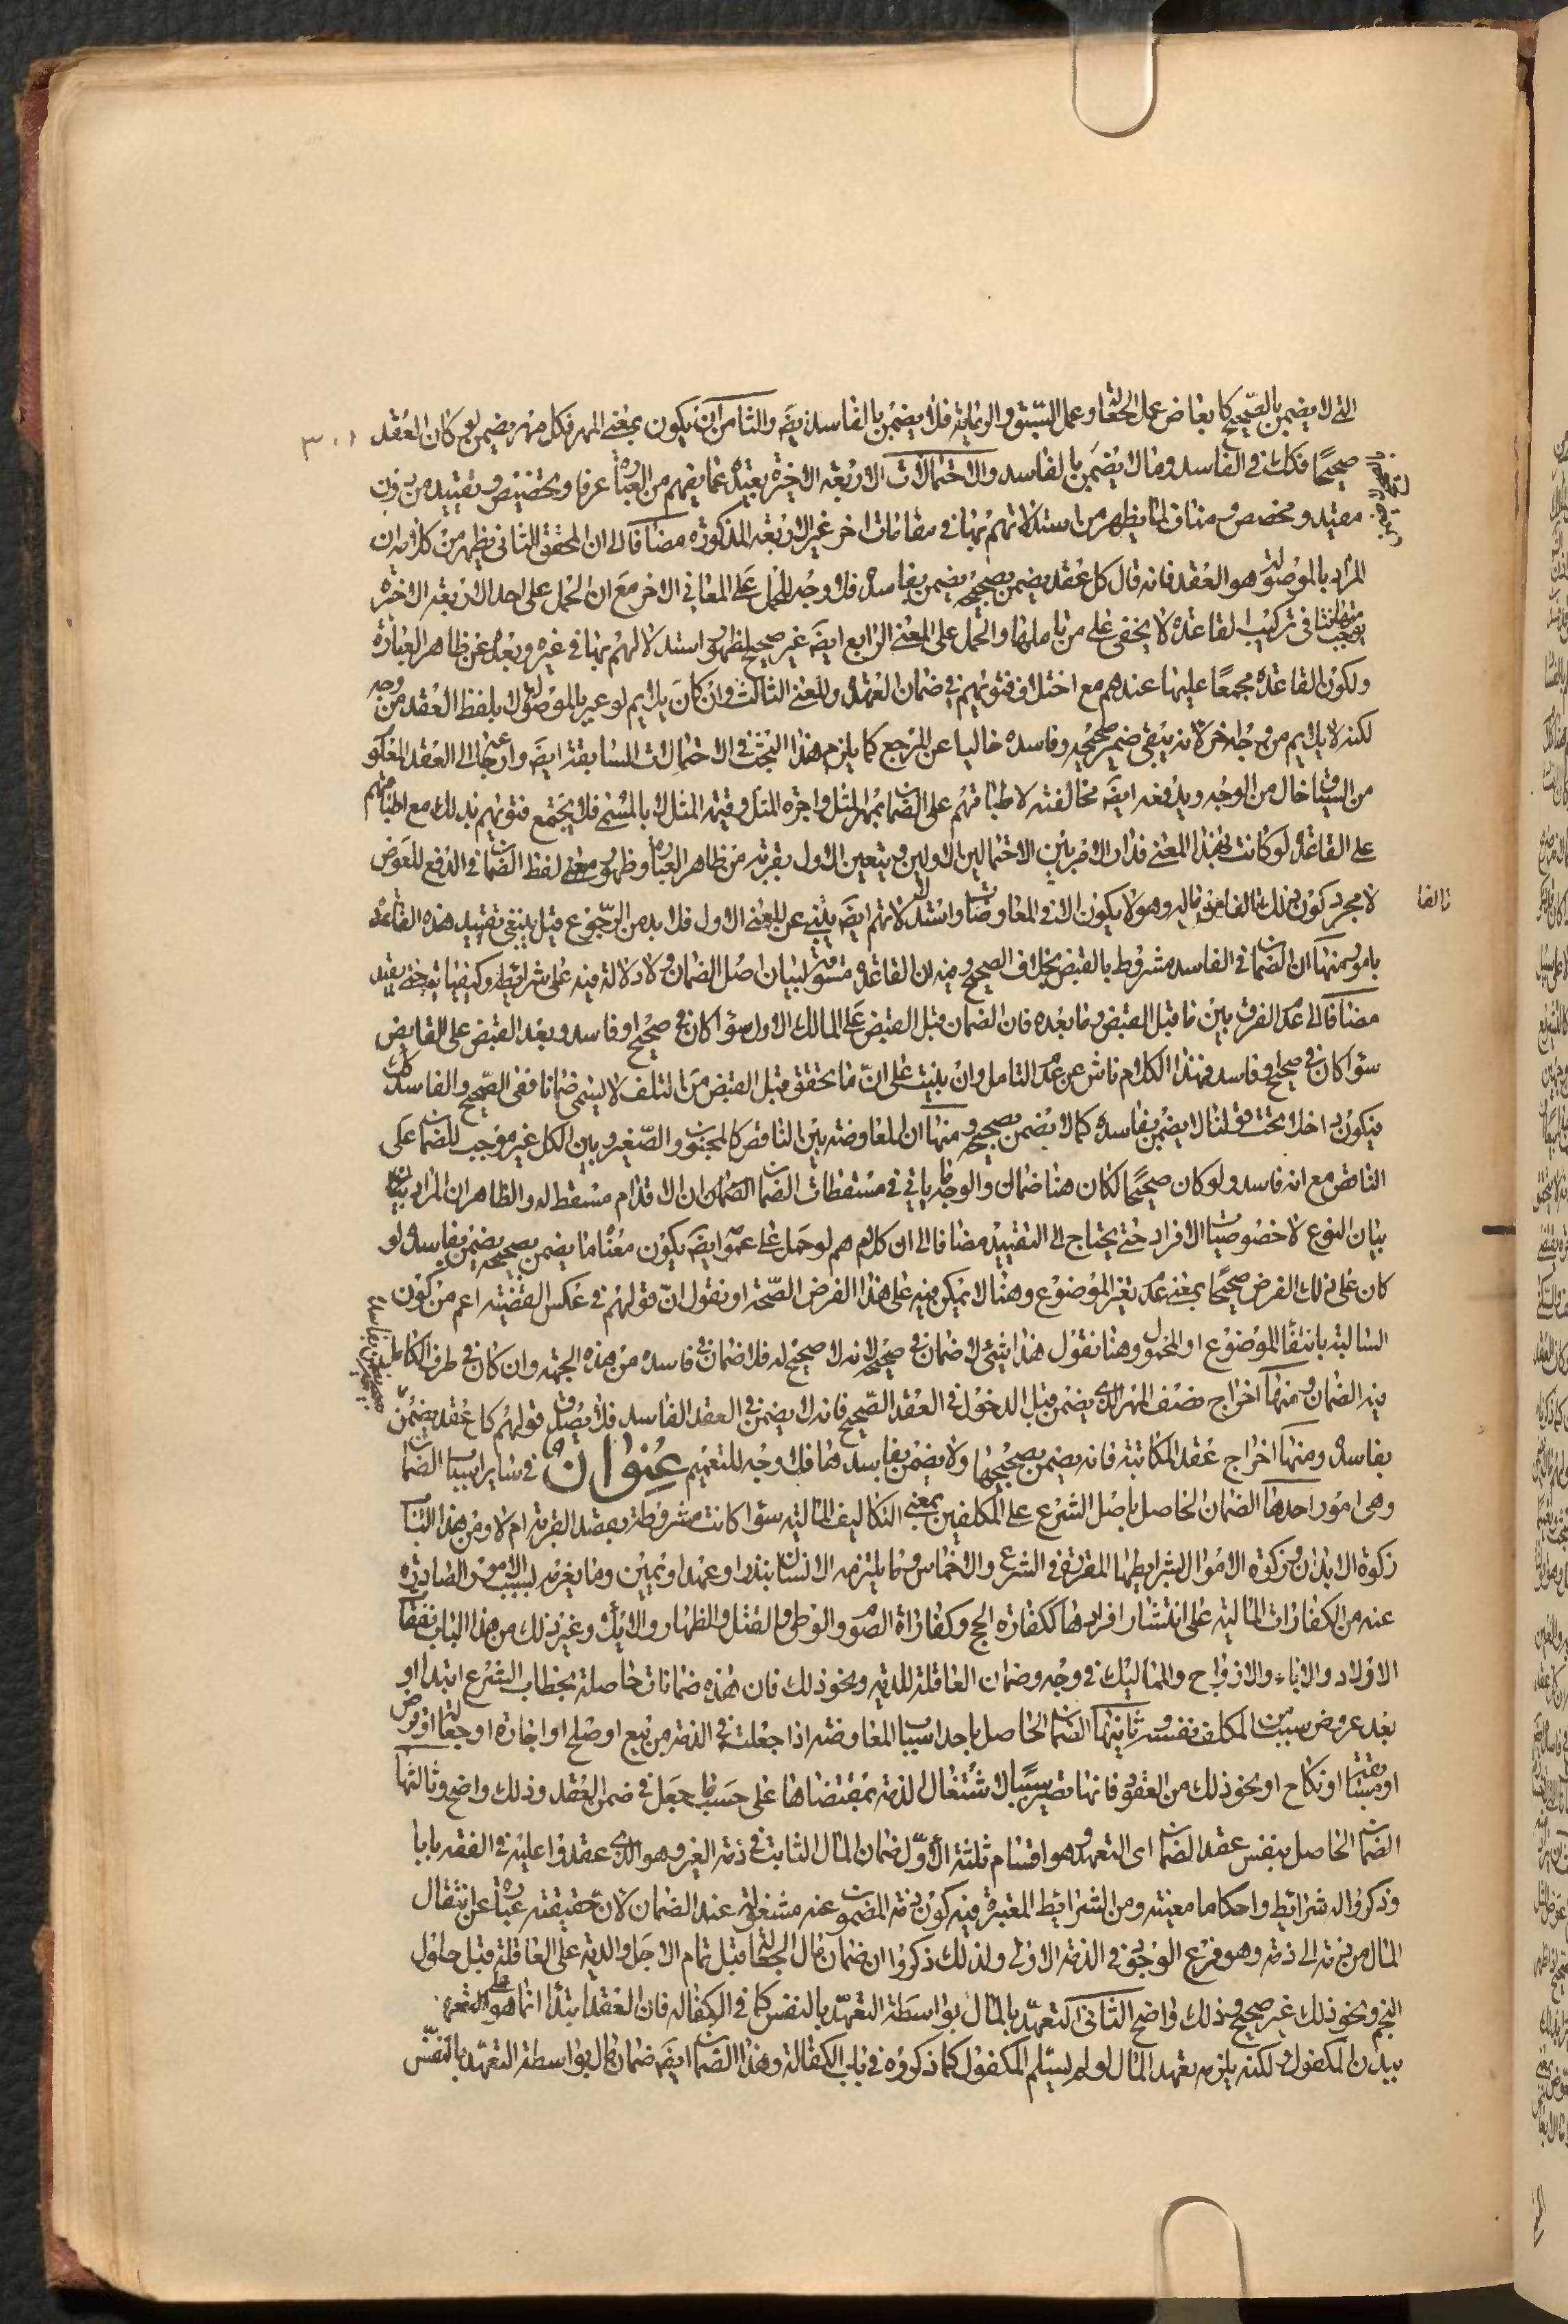 التي لا يضمن بالصحيح كما يعاض عمل الجعالة او عمل السبق والرماية فلا يضمن بالفاسد ايضه والثامن ان يكون بمعنى المهر فكل مهر يضمن لو كان العقد
٣٠١
صحيحًا فكك في الفاسد وما لا يضمن بالفاسد والاحتمالات الاربعة الاخيرة بعيدة عما يفهم من العبارة عرفا وتخصيص وتقييد من دون
مقيد ومخصص ومناف لما يظهر من استدلالاتهم بها في مقامات اخر غير الاربعة المذكورة مضافا الى ان المحقق الثاني يظهر من كلامه ان
المراد بالموصولة هو العقد فانه قال كل عقد يضمن بصحيحه يضمن بفاسده فلا وجه للحمل على المعاني الاخر مع ان الحمل على احد الاربعة الاخيرة
يوجب في تركيب القاعدة لا يخفى على من تاملها والحمل على المعنى الرابع ايضه غير صحيح لظهور استدلالهم بها في غيره وبعده عن ظاهر العبارة
ولكون القاعدة مجمعًا عليها عندهم مع اختلاف فتويهم في ضمان العهدة والمعنى الثالث وان كان يلايم لو عبر بالموصولة لا بلفظ العقد من وجه
لكنه لا يلايم من وجه اخر لانه يبقى ضمير صحيحه وفاسده خاليا عن المرجع كما يلزم هذا البحث في الاحتمالات السابقة ايضه وارجاعه الى العقد المعلوم
من السياق خال من الوجه ويدفعه ايضه مخالفته لاطباقهم على الضمان بمهر المثل واجرة المثل وقيمة المثل لا بالمسمى فلا يجتمع فتويهم بذلك مع اطباقهم
على القاعدة لو كانت بهذا المعنى فدار الامر بين الاحتمالين الاولين ويتعين الاول بقرينة من ظاهر العبارة وظهور معنى لفظ الضمان في الدفع للعوض
لا مجرد كون ذلك تالفا من ماله وهو لا يكون الا في المعاوضات واستدلالاتهم ايضه ينبئ عن المعنى الاول فلا بد من الرجوع قيل ينبغي تقييد هذه القاعدة
بامور منها ان الضمان في الفاسد مشروط بالقبض بخلاف الصحيح وفيه ان القاعدة مسوقة لبيان اصل الضمان ولا دلالة فيه على شرائطه وكيفياته حتى يقيد
مضافا الى عدم الفرق بين ما قبل القبض وما بعده فان الضمان قبل القبض على المالك الاول سواء كان في صحيح او فاسد وبعد القبض على القابض
سواء كان في صحيح او فاسد فهذا الكلام ناش عن عدم التامل وان بنيت على انّ ما يتحقق قبل القبض من التلف لا يسمى ضمانا ففي الصحيح والفاسد كك
فيكون داخلا تحت قولنا لا يضمن بفاسده كما لا يضمن بصحيحه ومنها ان المعاوضة بين الناقص كالمجنون والصغير وبين الكل غير موجب للضمان على
الناقص مع انه فاسد ولو كان صحيحًا لكان هنا ضمان والوجه ما ياتي في مسقطات الضمان ان الاقدام مسقط له والظاهر ان المراد بيان
بيان النوع لا خصوصيات الافراد حتى يحتاج الى التقييد مضافا الى ان كلامهم لو حمل على عمومه ايضه يكون معناه ما يضمن بصحيحه يضمن بفاسده لو
كان على ذلك الفرض صحيحًا بمعنى عدم تغير الموضوع وهنا لا يمكن فيه على هذا الفرض الصحة او نقول انّ قولهم في عكس القضية اعم من كون
السالبة بانتفاء الموضوع او المحمول وهنا نقول هذا شئ لا ضمان في صحيحه لانه لا صحيح له فلا ضمان في فاسده من هذه الجهة وان كان في طرف الكامل
فيه الضمان ومنها اخراج نصف المهر الذى يضمن قبل الدخول في العقد الصحيح فانه لا يضمن في العقد الفاسد فلا يصدق قولهم كل عقد يضمن
بفاسده ومنها اخراج عقد المكاتبة فانه يضمن بصحيحها ولا يضمن بفاسدها فلا وجه للتعميم عنوان في ساير اسباب الضمان
وهى امور احدها الضمان الحاصل باصل الشرع على المكلفين بمعنى التكاليف المالية سواء كانت مشروطة بقصد القربة ام لا ومن هذا الباب
زكوة الابدان وزكوة الاموال بشرايطها المقررة في الشرع والاخماس وما يلتزمه الانسان بنذر او عهد او يمين وما يغرمه لسبب الامور الصادرة
عنه من الكفارات المالية على انتشار افرادها ككفارة الحج وكفارة الصوم والوطى والقتل والظهار والايلاء وغير ذلك من هذا الباب نفقة
الاولاد والاباء والازواج والمماليك في وجه وضمان العاقلة للدية ونحو ذلك فان هذه ضمانات حاصلة بخطاب الشرع ابتداء او
بعد عروض سبب من المكلف نفسه وثانيها الضمان الحاصل باحد اسباب المعاوضة اذا جعلت في الذمة من بيع او صلح او اجارة او جعالة او قرض
او هبة او نكاح او نحو ذلك من العقود فانها تصير سببًا لاشتغال الذمة بمقتضاها على حسب ما جعل في ضمن العقد وذلك واضح وثالثها
الضمان الحاصل بنفس عقد الضمان اى التعهد وهو اقسام ثلثة الأول ضمان المال الثابت في ذمة الغير وهو الذى عقدوا عليه في الفقه بابا
وذكروا له شرائط واحكاما معينة ومن الشرائط المعتبرة فيه كون ذمة المضمون عنه مشغولة عند الضمان لانّ حقيقته عبارة عن انتقال
المال من ذمة الى ذمة وهو فرع الوجود في الذمة الاولى ولذلك ذكروا ان ضمان مال الجعالة قبل تمام الاجل والدية على العاقلة قبل حلول
النجم ونحو ذلك غير صحيح وذلك واضح الثانى التعهد بالمال بواسطة التعهد بالنفس كما في الكفالة فان العقد ابتداء انما هو على التعهد
ببدن المكفول ولكنه يلزمه تعهد المال لو لم يسلم المكفول كما ذكروه في باب الكفالة وهذا الضمان ايضه ضمان مال بواسطة التعهد بالنفس